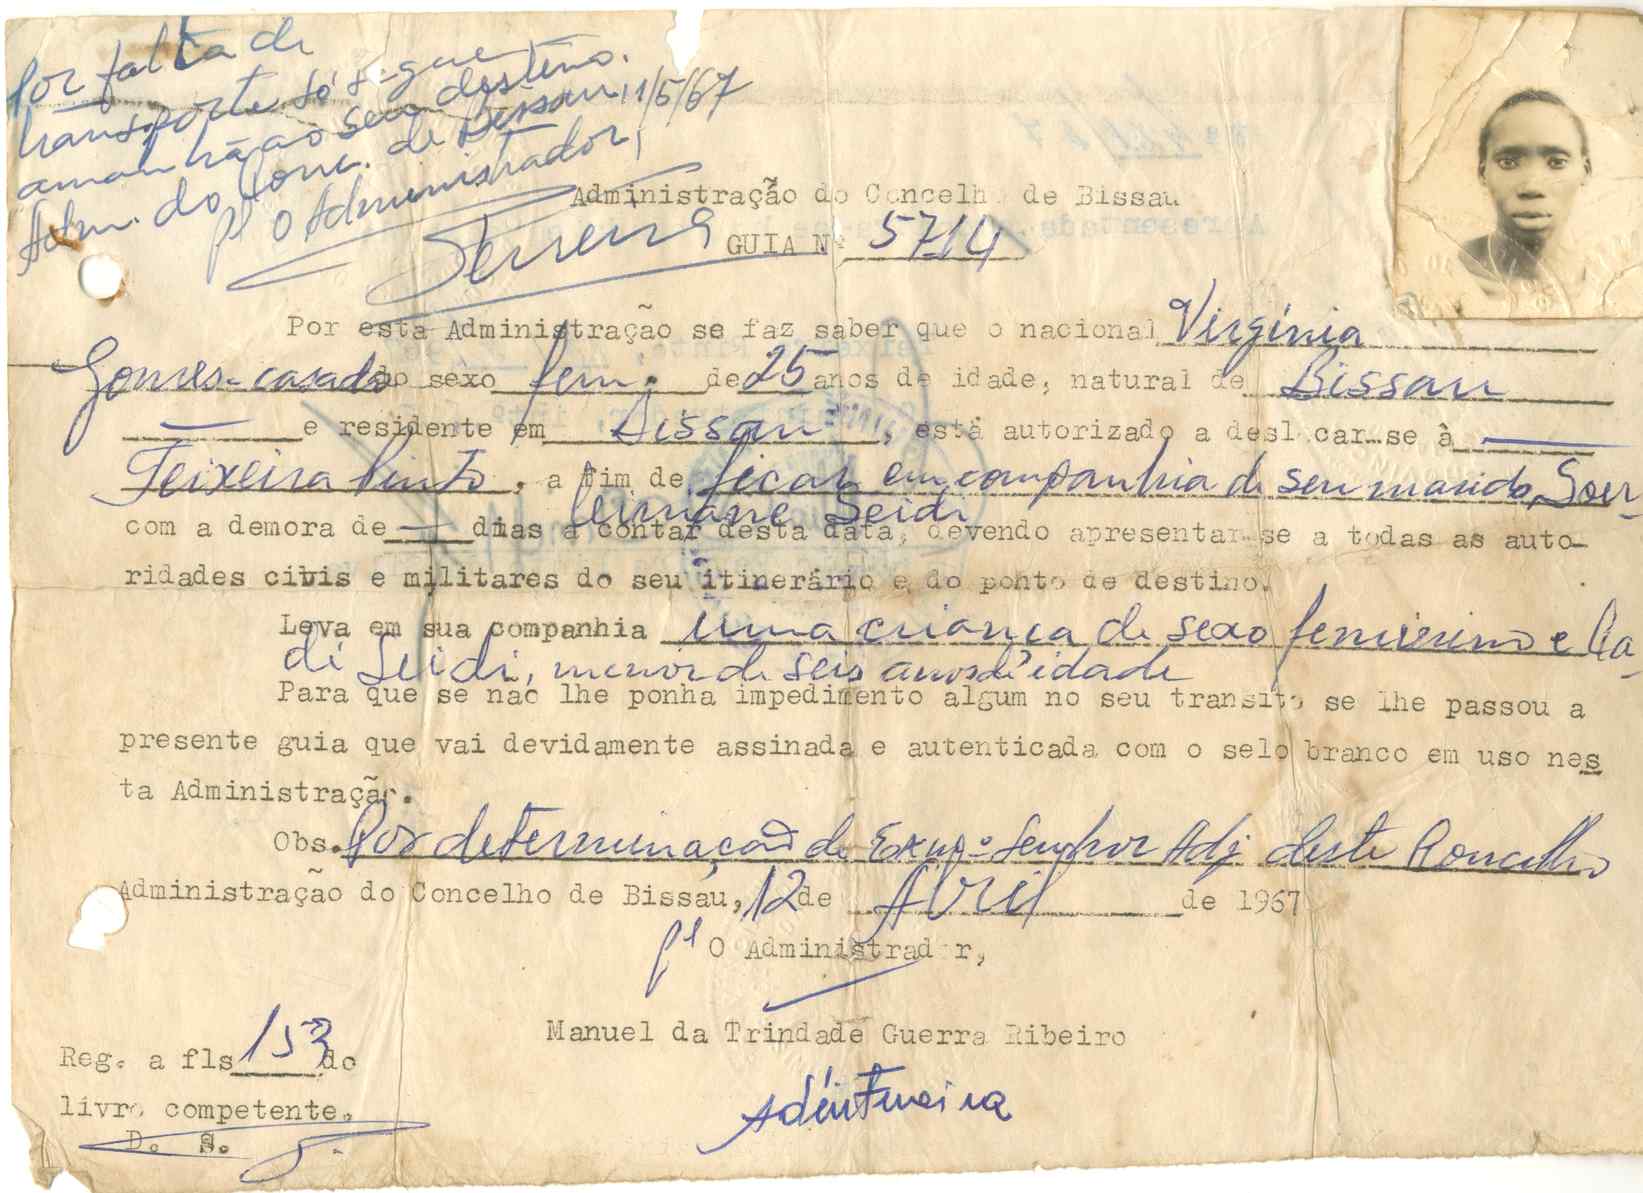 Por falta de
transporte só segue
amanhã ao seu destino.
Adm. do Conc. de Bissau, 11/5/67
pl O Administrador,
Ferreira
Administração do Concelho de Bissau
GUIA Nº 5714
Por esta Administração se faz saber que o nacional Virgínia
Gomes - casada do sexo fem. de 25 anos de idade, natural de Bissau
— e residente em Bissau, está autorizado a deslocar-se à —
Teixeira Pinto, a fim de ficar em companhia de seu marido, Soer-
Seidi
com a demora de — dias a contar desta data, devendo apresentar-se a todas as auto-
ridades civis e militares do seu itinerário e do ponto de destino.
Leva em sua companhia uma criança de sexo feminino e Ca-
di Seidi, menor de seis anos d'idade
Para que se não lhe ponha impedimento algum no seu transito se lhe passou a
presente guia que vai devidamente assinada e autenticada com o selo branco em uso nes
ta Administração.
Obs. Por determinação de Exmº Senhor Adj. deste Concelho
Administração do Concelho de Bissau, 12 de Abril de 1967
pl O Administrador,
Manuel da Trindade Guerra Ribeiro
Reg. a fls 153 do
livro competente.
D. S.